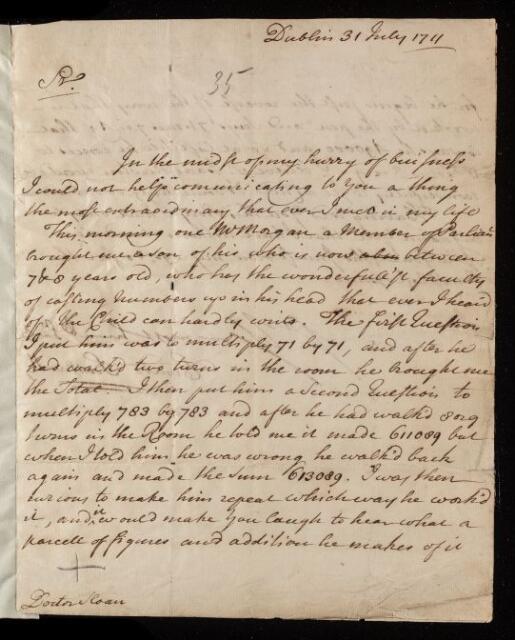 Dublin 31 July 1711
Sr.
35
In the midst of my hurry of buisness
I could not help communicating to you a thing
the most extraordinary that ever I met in my life
This morning one Mr Morgan a Member of Parliamt
brought me a son of his who is now abu between
7&8 years old, who has the wonderfull'st faculty
of casting Numbers up in his head that ever I heard
of. the Child can hardly write. The first Question
I put him was to multiply 71 by 71, and after he
had walk'd two turns in the room he brought me
the Total. I then put him a Second Question to
multiply 783 by 783 and after he had walk'd 8 or 9
turns in the Room he told me it made 611089 but
when I told him he was wrong he walk'd back
again and made the sum 613089. I was then
curious to make him repeat which way he work'd
it, and it would make you laugh to hear what a
parcell of figures and addition he makes of it
Doctor Sloan